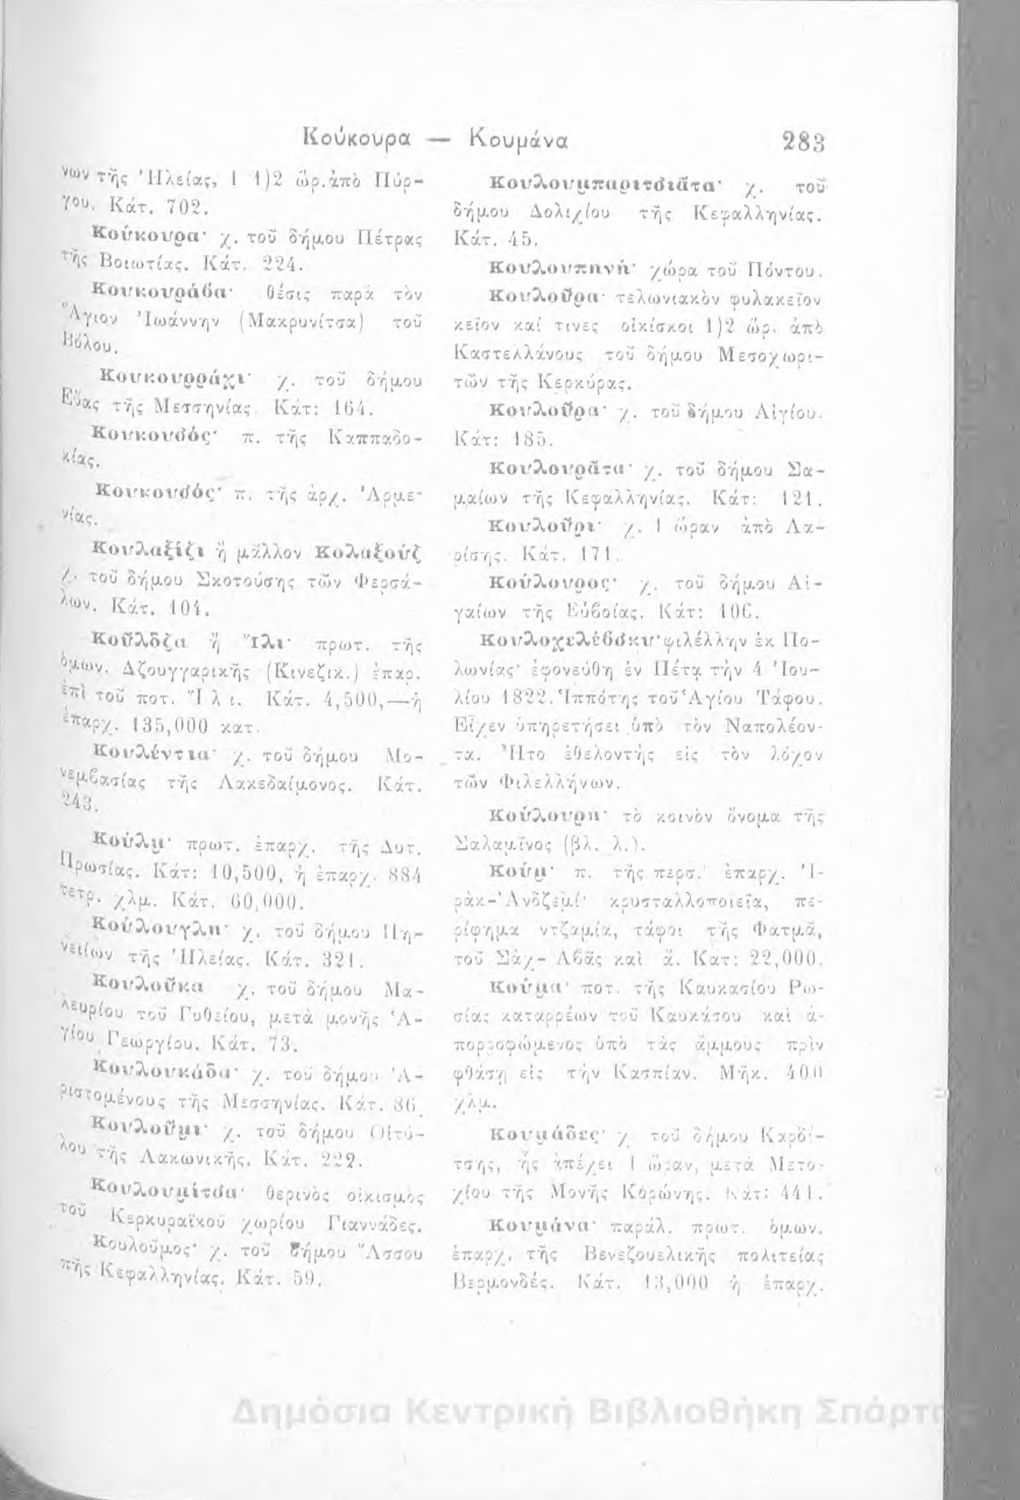 Κούκουρα — Κουμάνα 283
νων τῆς Ἠλείας, 1 1)2 ὥρ. ἀπὸ Πύρ-
γου. Κάτ. 702.
Κούκουρα· χ. τοῦ δήμου Πέτρας
τῆς Βοιωτίας. Κάτ. 224.
Κουκουράβα· θέσις παρὰ τὸν
Ἅγιον Ἰωάννην (Μακρυνίτσα) τοῦ
Βόλου.
Κουκουρράχι· χ. τοῦ δήμου
Εὔας τῆς Μεσσηνίας. Κάτ: 164.
Κουκουσός· π. τῆς Καππαδο-
κίας.
Κουκουσός· π. τῆς ἀρχ. Ἀρμε-
νίας.
Κουλαξίζι ἢ μᾶλλον Κολαξούζ
χ. τοῦ δήμου Σκοτούσης τῶν Φερσά-
λων. Κάτ. 104.
Κοῦλδζα ἢ Ἴλι· πρωτ. τῆς
ὁμων. Δζουγγαρικῆς (Κινεζικ.) ἐπαρ.
ἐπὶ τοῦ ποτ. Ἴλι. Κάτ. 4,500,—ἡ
ἐπαρχ. 135,000 κατ.
Κουλέντια· χ. τοῦ δήμου Μο-
νεμβασίας τῆς Λακεδαίμονος. Κάτ.
243.
Κούλμ· πρωτ. ἐπαρχ. τῆς Δυτ.
Πρωσίας. Κάτ: 10,500, ἡ ἐπαρχ. 884
τετρ. χλμ. Κάτ. 60,000.
Κούλουγλη· χ. τοῦ δήμου Πη-
νείων τῆς Ἠλείας. Κάτ. 321.
Κουλοῦκα χ. τοῦ δήμου Μα-
λευρίου τοῦ Γυθείου, μετὰ μονῆς Ἁ-
γίου Γεωργίου. Κάτ. 73.
Κουλουκάδα· χ. τοῦ δήμου Ἀ-
ριστομένους τῆς Μεσσηνίας. Κάτ. 86.
Κουλοῦμι· χ. τοῦ δήμου Οἰτύ-
λου τῆς Λακωνικῆς. Κάτ. 222.
Κουλουμίτσα· θερινὸς οἰκισμὸς
τοῦ Κερκυραϊκοῦ χωρίου Γιαννάδες.
Κουλοῦμος· χ. τοῦ δήμου Ἄσσου
τῆς Κεφαλληνίας. Κάτ. 59.
Κουλουμπαριτσιᾶτα· χ. τοῦ
δήμου Δολιχίου τῆς Κεφαλληνίας.
Κάτ. 45.
Κουλουπηνή· χώρα τοῦ Πόντου.
Κουλοῦρα· τελωνιακὸν φυλακεῖον
κεῖον καί τινες οἰκίσκοι 1)2 ὥρ. ἀπὸ
Καστελλάνους τοῦ δήμου Μεσοχωρι-
τῶν τῆς Κερκύρας.
Κουλοῦρα· χ. τοῦ δήμου Αἰγίου.
Κάτ: 185.
Κουλουρᾶτα· χ. τοῦ δήμου Σα-
μαίων τῆς Κεφαλληνίας. Κάτ: 121.
Κουλοῦρι· χ. 1 ὥραν ἀπὸ Λα-
ρίσης. Κάτ. 171.
Κούλουρος· χ. τοῦ δήμου Αἰ-
γαίων τῆς Εὐβοίας. Κάτ: 106.
Κουλοχελέβσκυ· φιλέλλην ἐκ Πο-
λωνίας· ἐφονεύθη ἐν Πέτᾳ τὴν 4 Ἰου-
λίου 1822. Ἱππότης τοῦ Ἁγίου Τάφου.
Εἶχεν ὑπηρετήσει ὑπὸ τὸν Ναπολέον-
τα. Ἦτο ἐθελοντὴς εἰς τὸν λόχον
τῶν Φιλελλήνων.
Κούλουρη· τὸ κοινὸν ὄνομα τῆς
Σαλαμῖνος (βλ. λ.).
Κούμ· π. τῆς περσ. ἐπαρχ. Ἰ-
ράκ-Ἀνδζεμί· κρυσταλλοποιεῖα, πε-
ρίφημα ντζαμία, τάφοι τῆς Φατμᾶ,
τοῦ Σὰχ-Ἀβᾶς καὶ ἄ. Κατ: 22,000.
Κούμα· ποτ. τῆς Καυκασίου Ρω-
σίας καταρρέων τοῦ Καυκάσου καὶ ἀ-
πορροφώμενος ὑπὸ τὰς ἄμμους πρὶν
φθάσῃ εἰς τὴν Κασπίαν. Μῆκ. 400
χλμ.
Κουμάδες· χ τοῦ δήμου Καρδι-
τσης, ἧς ἀπέχει 1 ὥραν, μετὰ Μετο-
χίου τῆς Μονῆς Κορώνης. Κάτ: 441.
Κουμάνα· παράλ. πρωτ. ὁμων.
ἐπαρχ. τῆς Βενεζουελικῆς πολιτείας
Βερμουδές. Κάτ. 13,000 ἡ ἐπαρχ.
Δημόσια Κεντρική Βιβλιοθήκη Σπάρτης